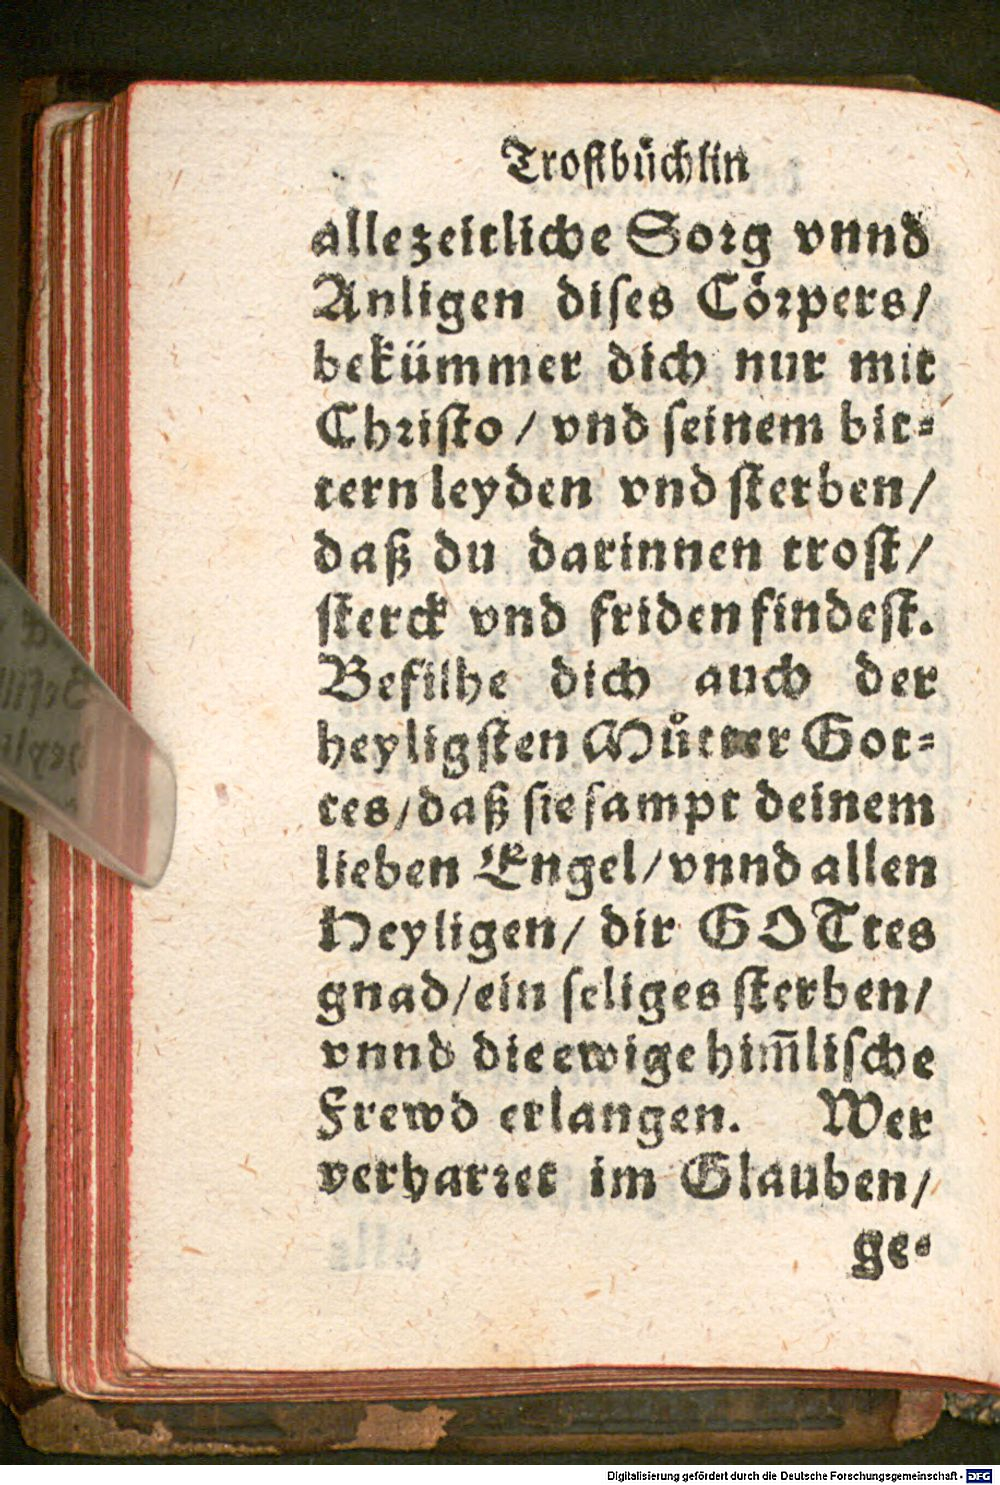 Troſtbuͤchlin
alle zeitliche Sorg vnnd
Anligen diſes Coͤrpers/
bekümmer dich nur mit
Chriſto / vnd ſeinem bit⸗
tern leyden vnd ſterben/
daß du darinnen troſt/
ſterck vnd friden findeſt.
Befilhe dich auch der
heyligſten Můtter Got⸗
tes/ daß ſie ſampt deinem
lieben Engel/ vnnd allen
Heyligen/ dir GOTtes
gnad/ ein ſeliges ſterben/
vnnd die ewige him̃liſche
Frewd erlangen. Wer
verharret im Glauben/
ge⸗
Digitalisierung gefördert durch die Deutsche Forschungsgemeinschaft - DFG